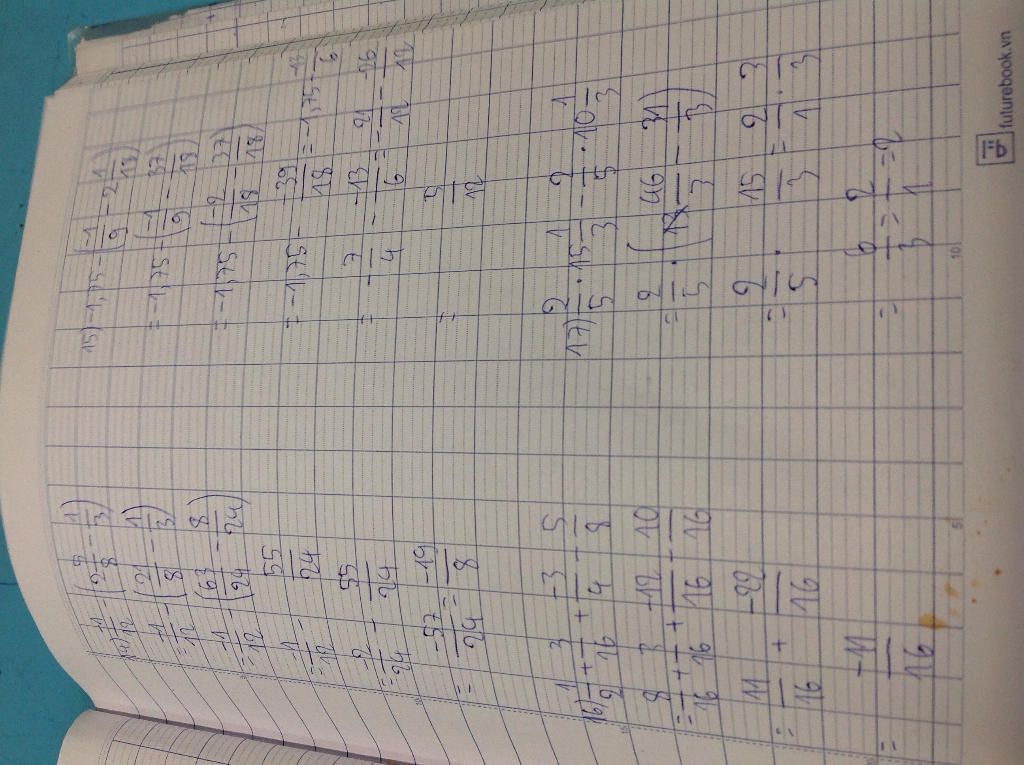 14) -1/12 - (2 5/8 - 1/3)
= -1/12 - (21/8 - 1/3)
= -1/12 - (63/24 - 8/24)
= -1/12 - 55/24
= -2/24 - 55/24
= -57/24 = -19/8
16) 1/2 + 3/16 + -3/4 - 5/8
= 8/16 + 3/16 + -12/16 - 10/16
= 11/16 + -22/16
= -11/16
15) -1,75 - (-1/9 - 2 1/18)
= -1,75 - (-1/9 - 37/18)
= -1,75 - (-2/18 - 37/18)
= -1,75 - -39/18 = -1,75 - -13/6
= -7/4 - -13/6 = -21/12 - -26/12
= 5/12
17) 2/5 . 15 1/3 - 2/5 . 10 1/3
= 2/5 . (46/3 - 31/3)
= 2/5 . 15/3 = 2/1 . 3/3
= 6/3 = 2/1 = 2
5
10
futurebook.vn